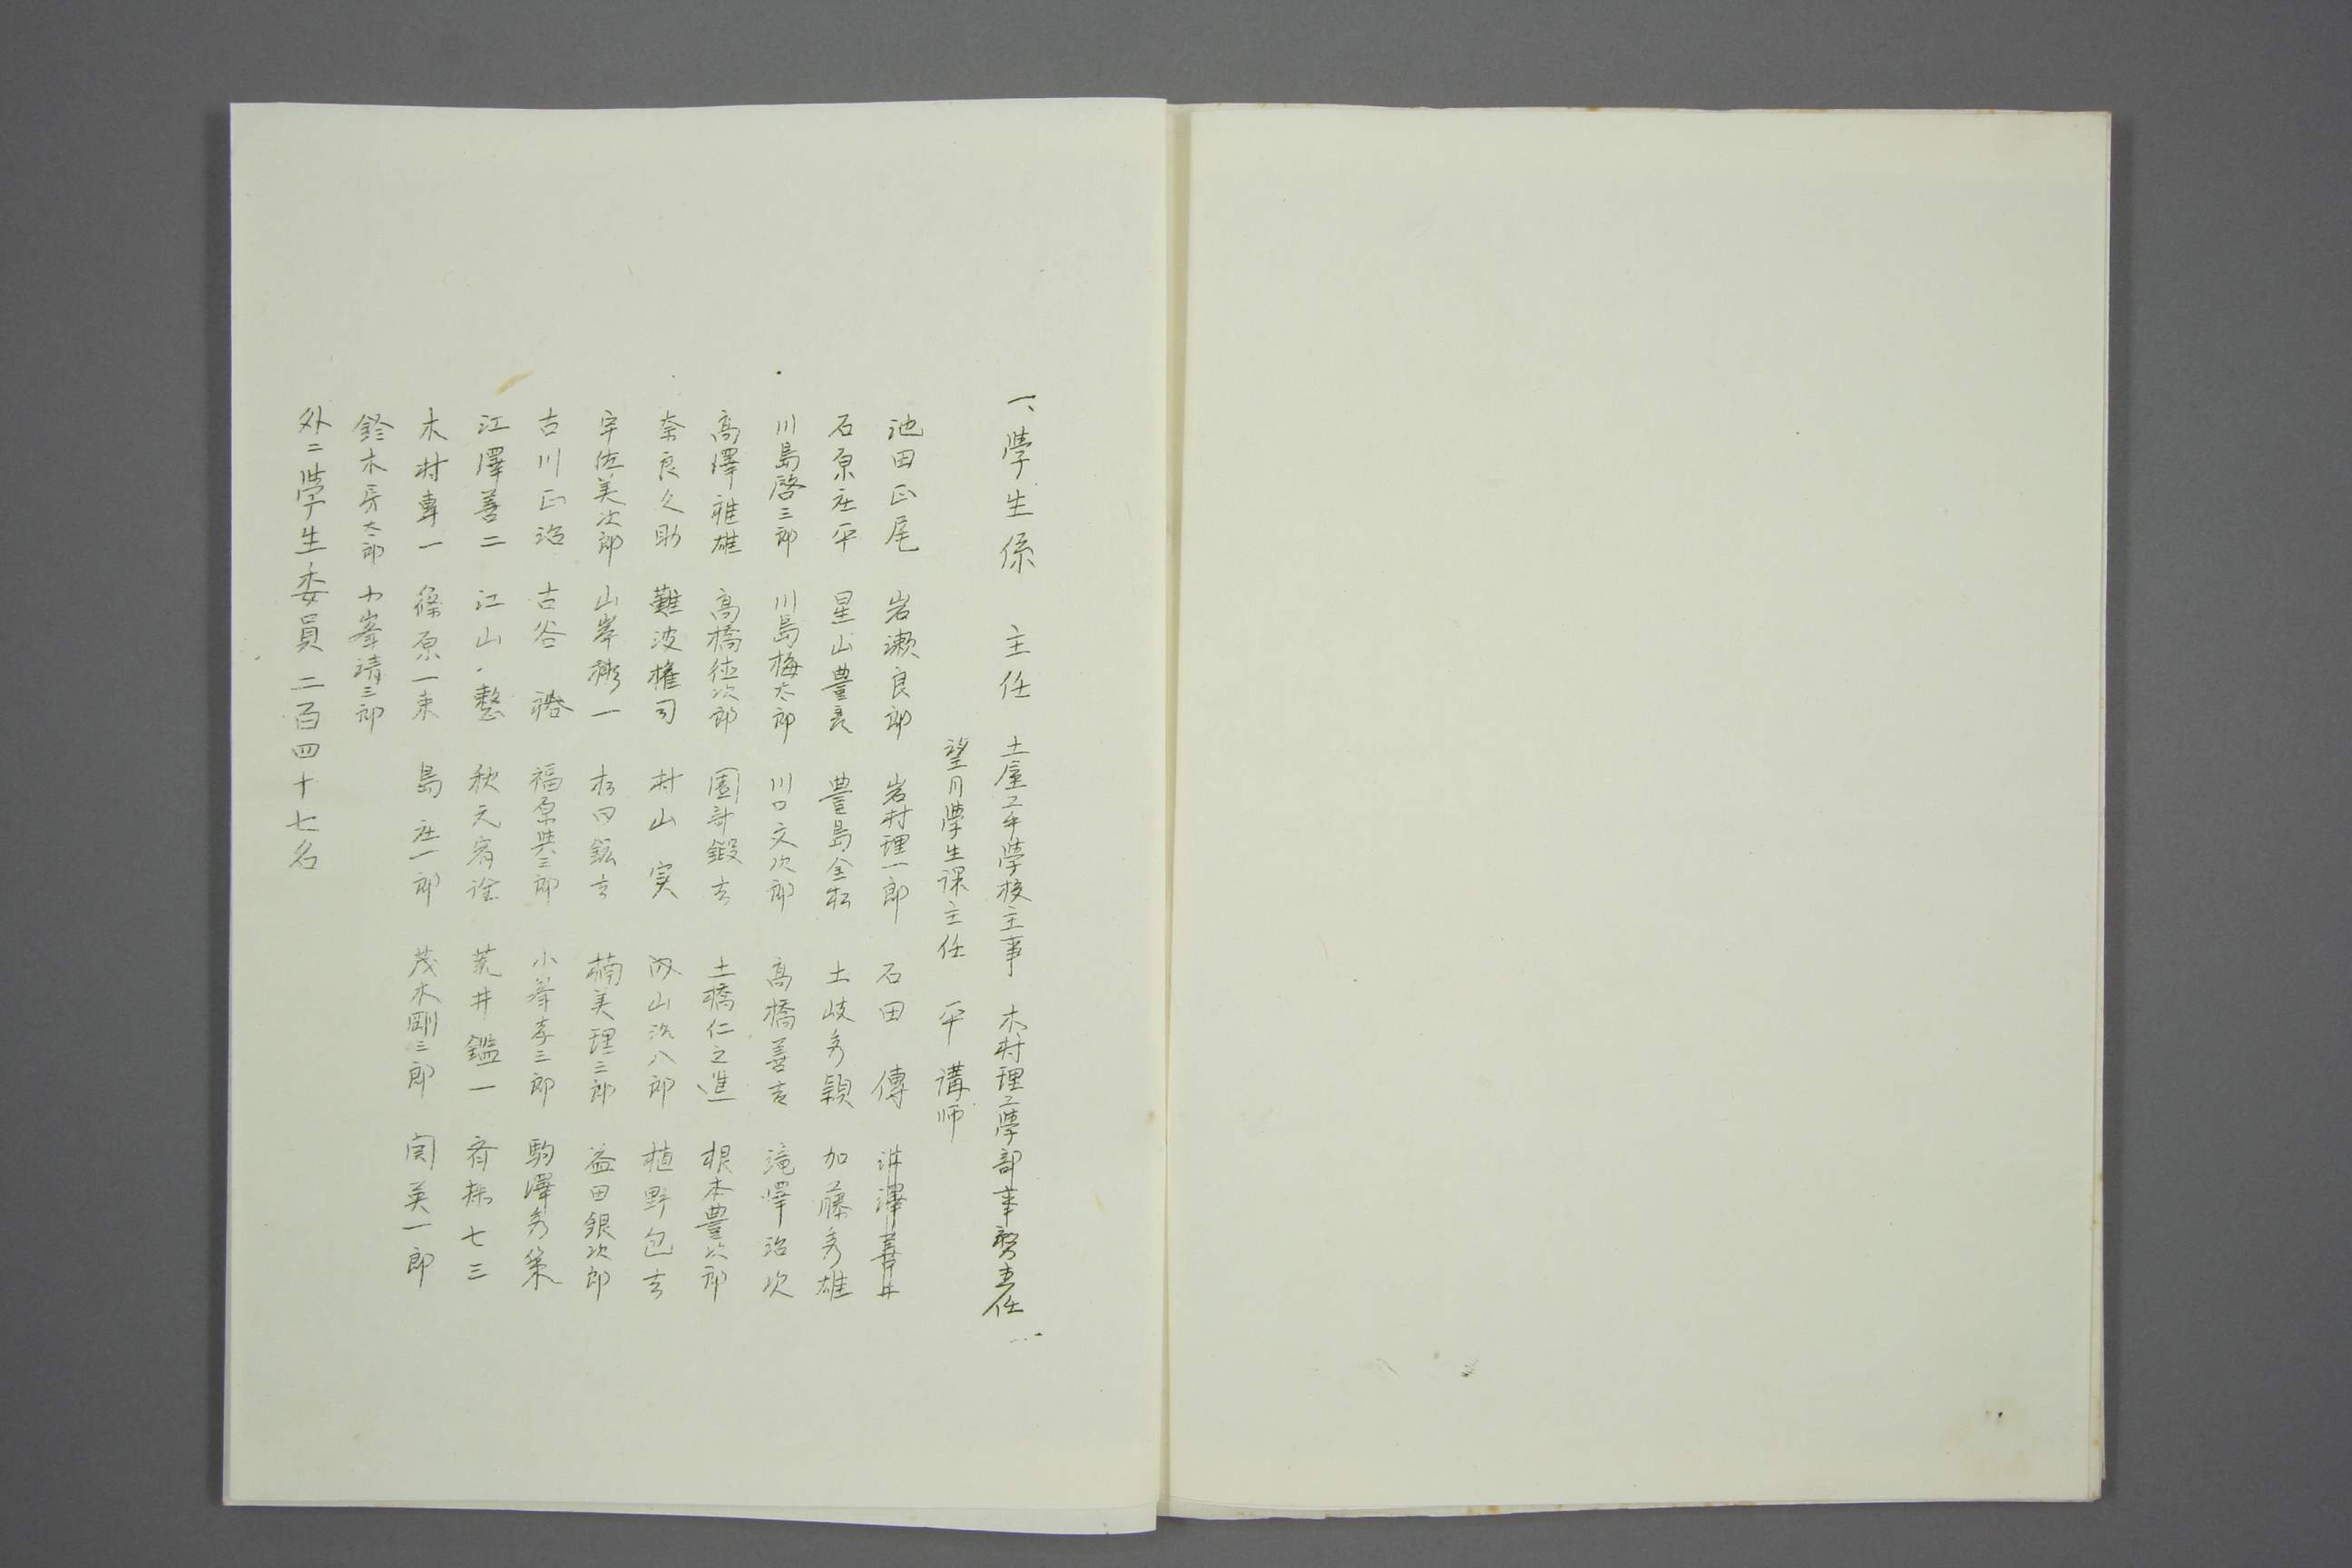 一、學生係　主任　土屋工手學校主事　木村理工學部事務主任
望月學生課主任　平　講師
池田正尾　岩瀬良郎　岩村理一郎　石田　傳　澤喜
石原庄平　星山豊　豊島全松　土岐秀穎　加藤秀雄
川島啓三郎　川島梅太郎　川口文次郎　高橋善吉　滝澤治次
高澤雅雄　高橋徳次郎　鍛吉　土橋仁之進　根本豊次郎
奈良久助　難波権司　村山　実　山八郎　植野包吉
宇佐美次郎　山岸彌一　松田鉱吉　楠美理三郎　益田銀次郎
古川正治　古谷　福原與三郎　小峯孝三郎　駒澤秀策
江澤善二　江山　整　秋元　荒井鑑一　七三
木村專一　篠原一束　島　庄一郎　茂木剛三郎　関英一郎
鈴木房太郎　小峯靖三郎
外ニ學生委員　二百四十七名